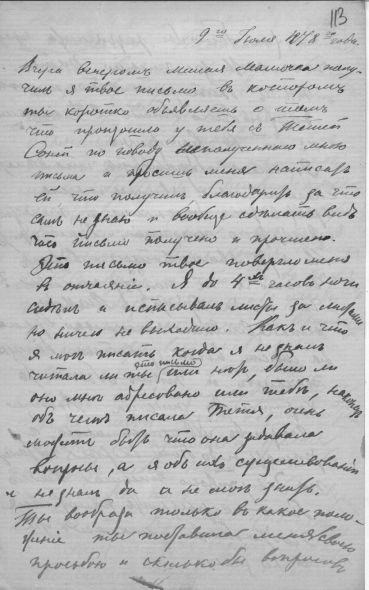 113
9го Iюля 1878го года.
Вчера вечеромъ милая Мамочка полу-
чилъ я твое письмо въ которомъ
ты коротко объявляешь о томъ
что произошло у тебя съ Тетей
Соней по поводу неполученнаго мною
письма и просишь меня написать
ей, что получилъ, благодарить за что
самъ не знаю и вообще сдѣлать видъ
что письмо получено и прочтено.
Это письмо твое повергло меня
въ отчаянiе. Я до 4хъ часовъ ночи
сидѣлъ и исписывалъ листы за листами
но ничего не выходило. Какъ и что
я могъ писать когда я не зналъ
читала ли ты это письмо или нѣтъ, было ли
оно мнѣ адресовано или тебѣ, наконецъ
объ чемъ писала Тетя, очень
можетъ быть что она задавала
вопросы, а я объ ихъ существованiи
и не зналъ да и не могъ знать.
Ты вообрази только въ какое поло-
женiе ты поставила меня своею
просьбою и сколько бы вопросовъ